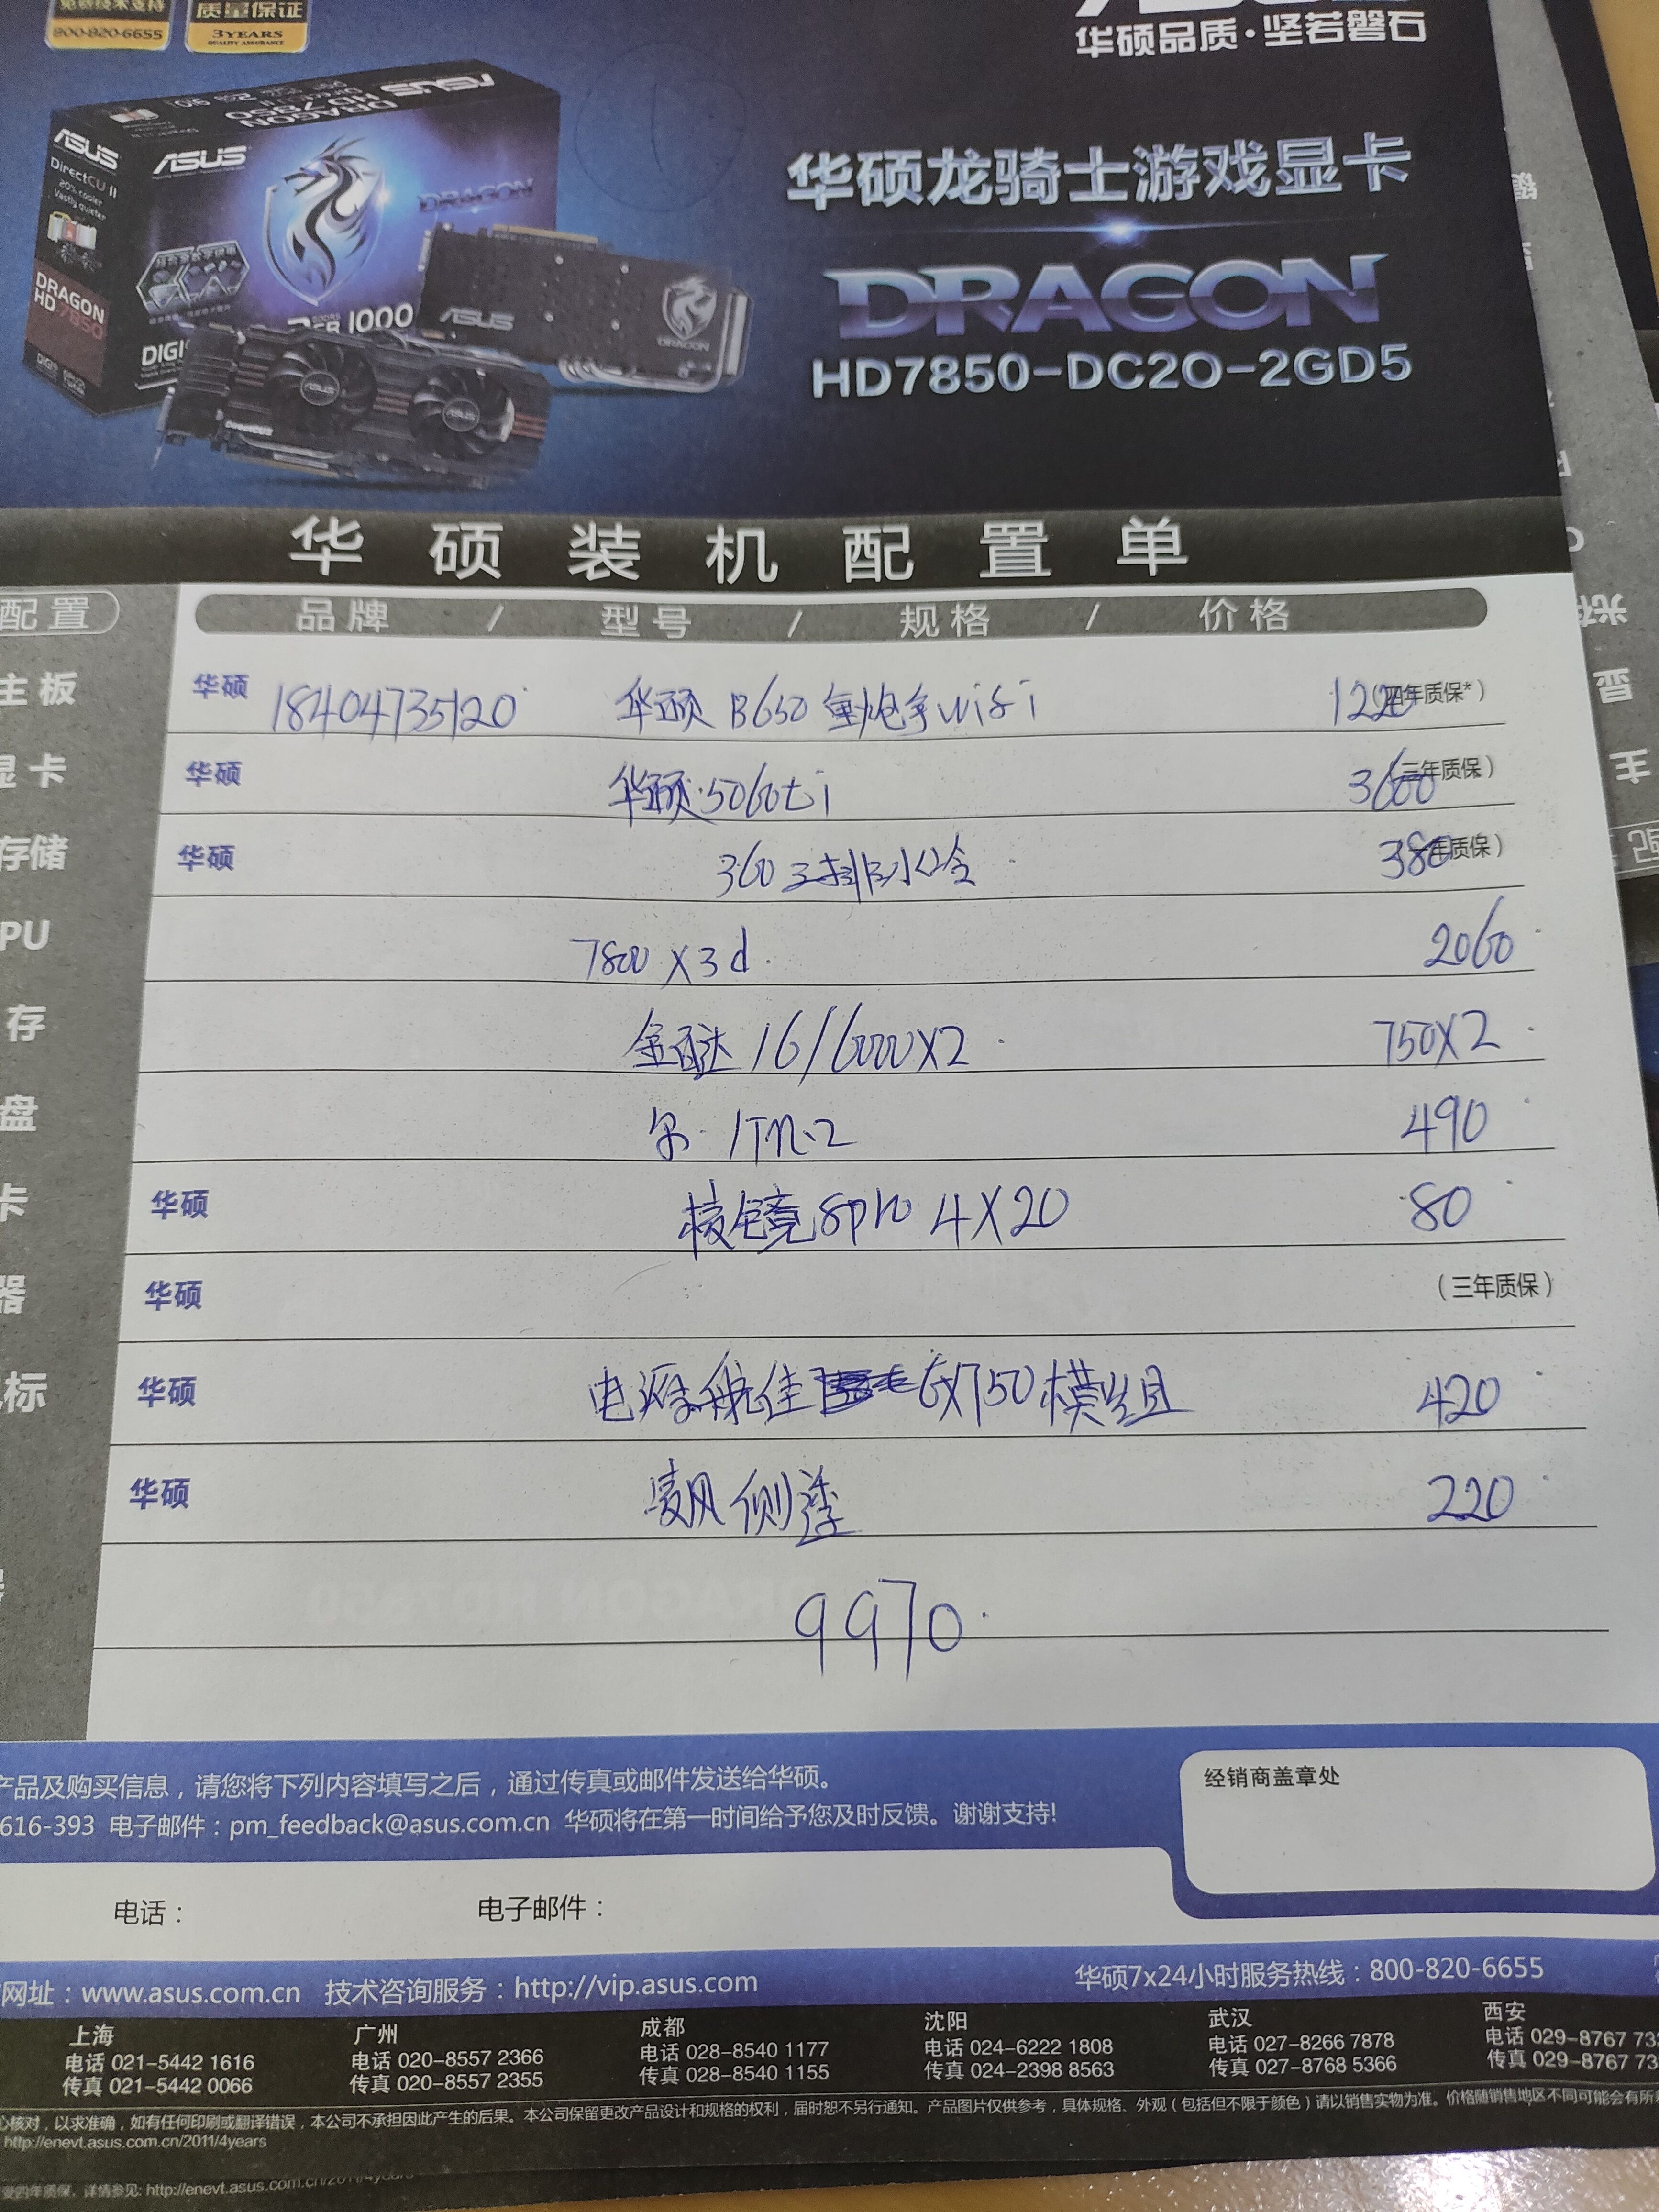 800-820-6655
质量保证
3YEARS
QUALITY ASSURANCE
华硕品质·坚若磐石
ASUS
DirectCU II
20% cooler
Vastly quieter
DRAGON
HD 7850
ASUS
DRAGON
1000
DIGI
ASUS
DRAGON
华硕龙骑士游戏显卡
DRAGON
HD7850-DC2O-2GD5
华硕装机配置单
配置
品牌 / 型号 / 规格 / 价格
主板 华硕 18404735120 华硕 B650 重炮手wifi 1220 (四年质保*)
显卡 华硕 华硕 5060ti 3600 (三年质保)
存储 华硕 360三排水冷 380 年质保)
PU 7800 X3d 2060
存 金百达 16/6000X2 750X2
盘 1Tn.2 490
卡 华硕 棱镜8pro 4X20 80
器 华硕 (三年质保)
标 华硕 电源 航佳 GX750模组 420
华硕 飘风侧透 220
9970
产品及购买信息,请您将下列内容填写之后,通过传真或邮件发送给华硕。
616-393 电子邮件:pm_feedback@asus.com.cn 华硕将在第一时间给予您及时反馈。谢谢支持!
经销商盖章处
电话: 电子邮件:
网址:www.asus.com.cn 技术咨询服务:http://vip.asus.com 华硕7x24小时服务热线:800-820-6655
上海 广州 成都 沈阳 武汉 西安
电话 021-5442 1616 电话 020-8557 2366 电话 028-8540 1177 电话 024-6222 1808 电话 027-8266 7878 电话 029-8767 73
传真 021-5442 0066 传真 020-8557 2355 传真 028-8540 1155 传真 024-2398 8563 传真 027-8768 5366 传真 029-8767 73
心核对,以求准确,如有任何印刷或翻译错误,本公司不承担因此产生的后果。本公司保留更改产品设计和规格的权利,届时恕不另行通知。产品图片仅供参考,具体规格、外观(包括但不限于颜色)请以销售实物为准。价格随销售地区不同可能会有所
http://enevt.asus.com.cn/2011/4years
受四年质保,详情参见: http://enevt.asus.com.cn/2011/4years